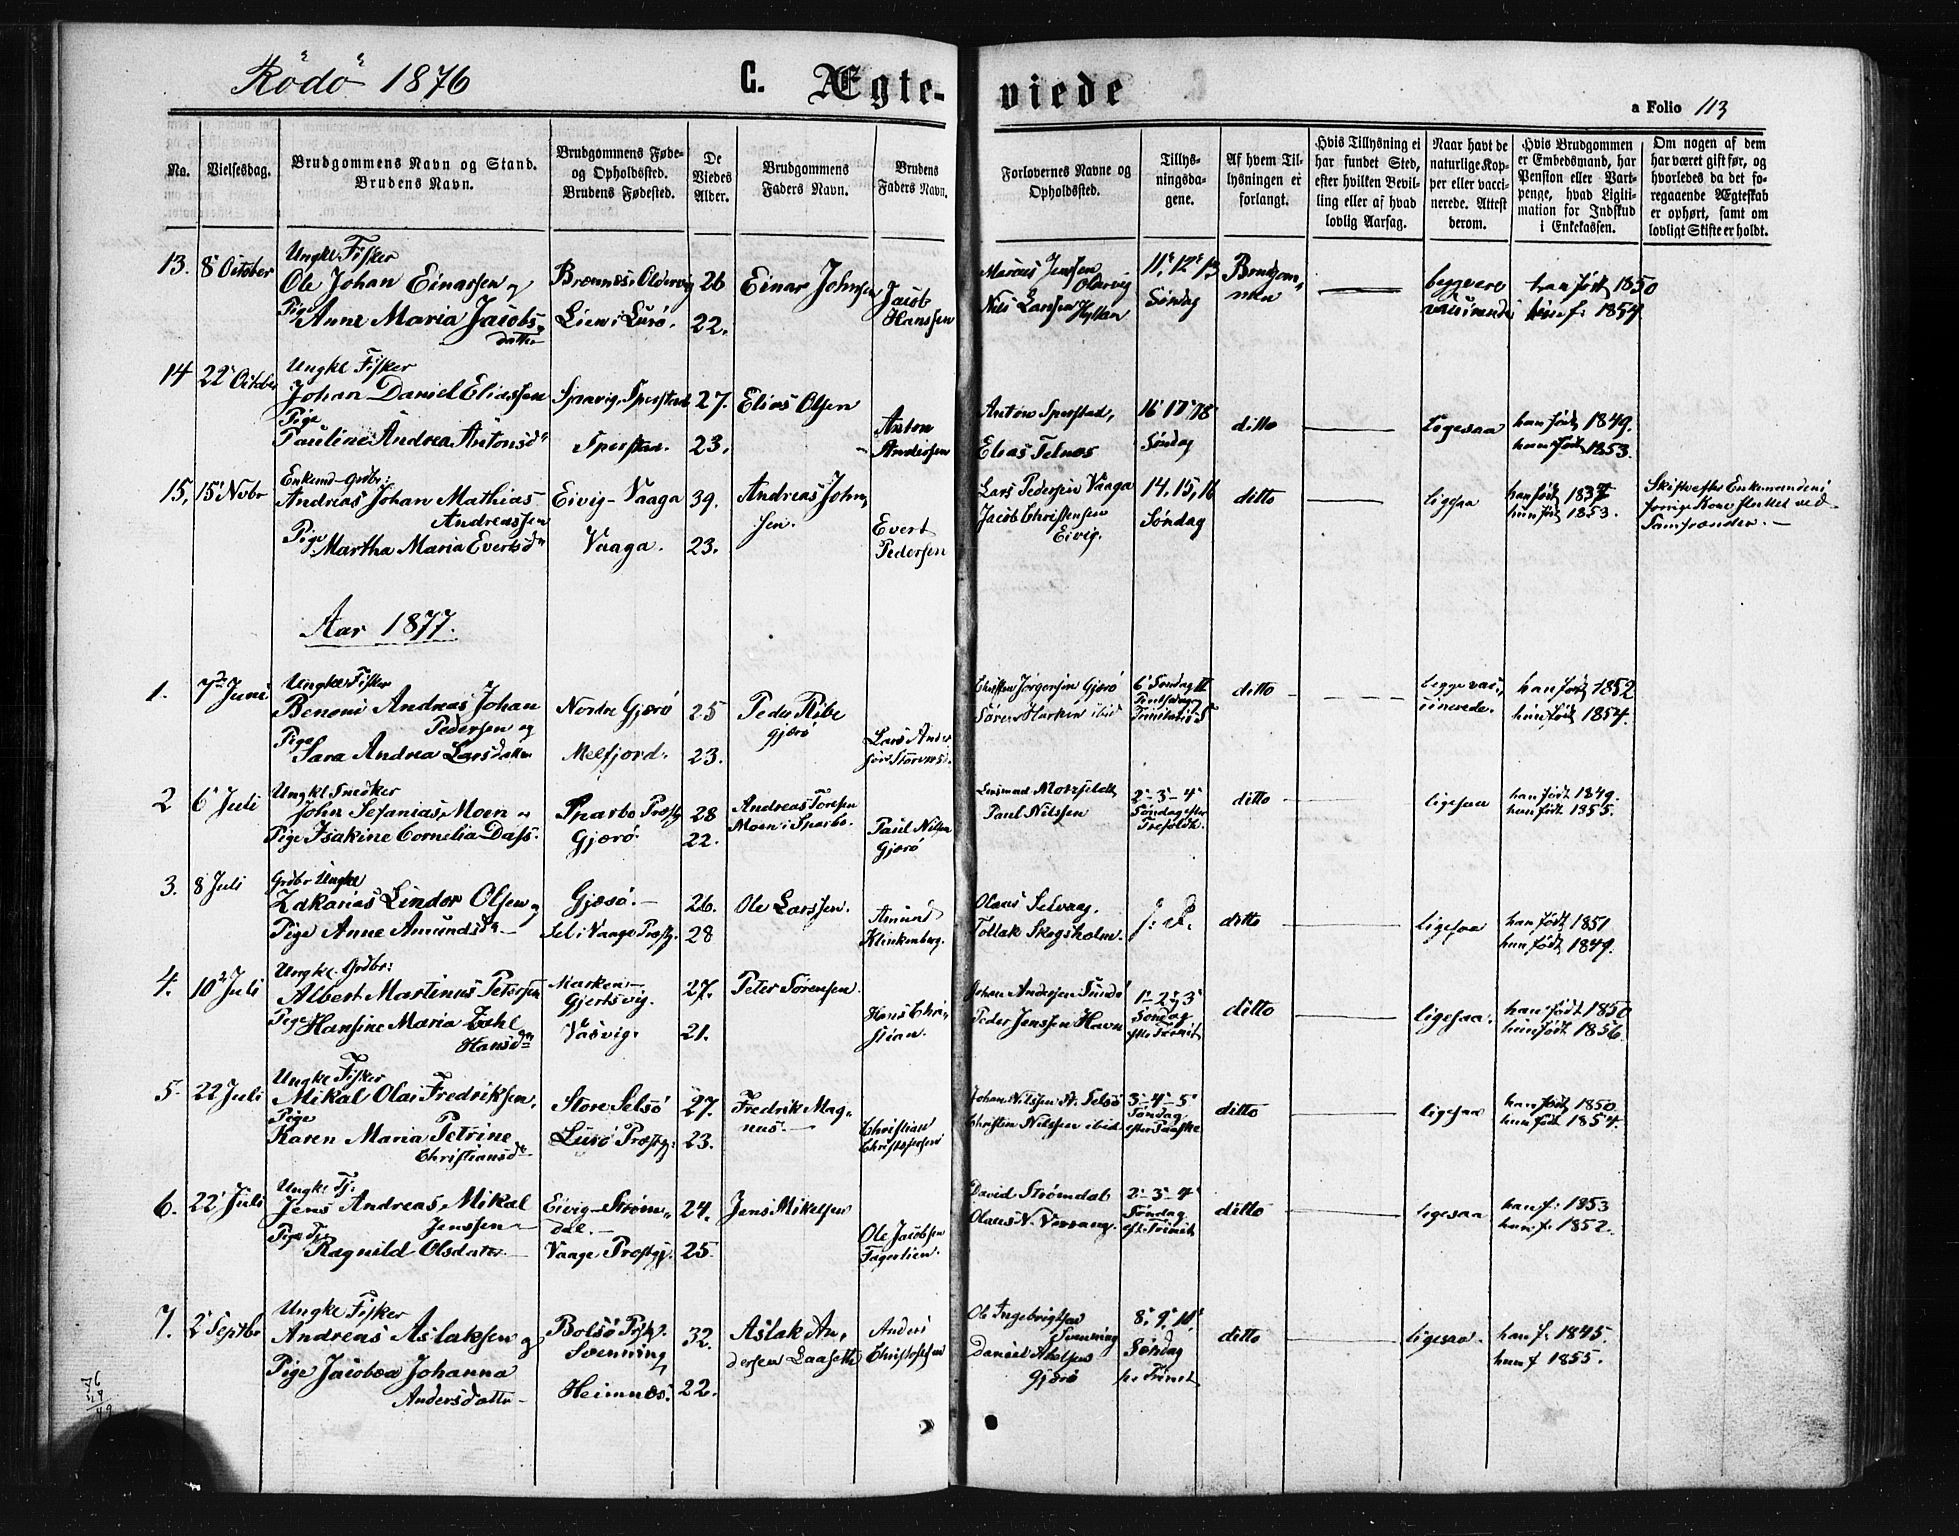 Rödö 1876
C. Ægte-
viede
a Folio 113
No.
Vielsesdag.
Brudgommens Navn og Stand.
Brudens Navn.
Brudgommens Føde-
og Opholdssted.
Brudens Fødested.
De
Viedes
Alder.
Brudgommens
Faders Navn.
Brudens
Faders Navn.
Forlovernes Navne og
Opholdssted.
Tillys-
ningsda-
gene.
Af hvem Til-
lysningen er
forlangt.
Hvis Tillysning ei
har fundet Sted,
efter hvilken Bevil-
ling eller af hvad
lovlig Aarsag.
Naar havt de
naturlige Kop-
per eller vacci-
nerede. Attest
derom.
Hvis Brudgommen
er Embedsmand, har
Pension eller Vart-
penge, hvad Ligiti-
mation for Indskud
i Enkekassen.
Om nogen af dem
har været gift før, og
hvorledes da det fo-
regaaende Ægteskab
er ophørt, samt om
lovligt Skifte er holdt.
13. 8 October
Ungke. Fisker
Ole Johan Einarsen og
Pige Anne Maria Jacobs-
datter
Brønnøs, Oldervig
Lien i Lurö.
26
22.
Einar Johnsen
Jacob
Hanssen
Marcus Jenssen
Olarvig
Nils Larssen Hyttan
11, 12, 13
Söndag
Brudgom-
men
begge
han født 1850
hun f. 1854
14 22 October
Ungkl Fisker
Johan Daniel Eliassen
Pige
Pauline Andrea Antonsd
Sperstad
27.
23.
Elias Olsen
Anton
Andersen
Anton Sperstad,
Elias Telnæs
16 17 18
Söndag
ditto
ligesaa
han født 1849.
hun født 1853.
15, 15 Novbr
Enkemd Grdbr:
Andreas Johan Mathias
Andreassen
Pige Martha Maria Evertsd
Eivig - Vaaga
Vaaga.
39.
23.
Andreas John-
sen.
Evert
Pedersen
Lars Pedersen Vaaga
Jacob Christensen
Eivig.
14, 15, 16
Söndag
ditto
ligesaa
hun født 1853.
Skifte efter Enkemandens
forrige Kone
Samfrænder. -
Aar 1877.
1. 7de Juni
Ungke Fisker
Benoni Andreas Johan
Pedersen og
Pige Sara Andrea Larsdatter
Nordre Gjerö
Melfjord.
25
23.
Peder Ribe
Gjerö
Lars Ander
Christen Jörgensen Gjerö
Sören
6 Söndag
ditto
begge vacci-
nerede.
han født 1852
hun født 1854.
2 6 Juli
Ungkl Snedker
John Sefanias Moen
Pige Isakine Cornelia Dass.
Sparbo Præstg
Gjerö
28
22.
Andreas Toresen
Moen i Sparbo.
Paul Nilsen
Gjerö
Lensmand Motzfeldt
Paul Nilssen
2-3-4
Söndag efter
ditto
ligesaa
han født 1849.
hun født 1855.
3. 8 Juli
Grdbr Ungke
Zakarias Lindor Olsen og
Pige Anne Amundsd
Gjerö.
Sel i Vaage Præstg.
26.
28
Ole Larssen.
Amund
Klinkenberg.
Olaus Selvaag.
Tollak Skogsholm.
ditto
ligesaa
han født 1851
hun født 1849.
4. 10 Juli
Ungke. Grdbr:
Albert Martinus Petersen
Pige Hansine Maria Zahl
Hansd
Gjertsvig.
Vasvig.
27.
21.
Peter Sörensen
Hans Chri-
stian.
Johan Andersen Sundö
Peder Jenssen Havn
1-2-3
Söndag
eft. Trinit
ditto
ligesaa.
han født 1850
hun født 1856.
5. 22 Juli
Ungke Fisker
Mikal Olai Fredriksen,
Pige
Karen Maria Petrine
Christiansd
Store Selsö
Lurö Præstg:
27.
23.
Fredrik Mag-
nus.
Christian
Christophersen
Johan Nilssen St. Selsö
Christen Nilssen ibid
3-4-5
Söndag
efter Paaske
ditto
ligesaa
han født 1850.
hun født 1854.
6. 22 Juli
Ungke Tj.
Jens Andreas Mikal
Jenssen
Pige Tj.
Ragnild Olsdatter
Eivig - Ström-
dal.
Vaage Præstgj.
24.
25.
Jens Mikelsen
Ole Jacobsen
Fagerlien.
David Strömdal
Olaus N.
2-3-4
Söndag
eft. Trinit
ditto
ligesaa
han f. 1853
hun f. 1852.
7. 2 Septbr
Ungke Fisker
Andreas Aslaksen og
Pige Jacobæa Johanna
Andersdatter
Bolsö Præstg.
Svenning
Heimnæs.
32.
22.
Aslak An-
dersen
Anders
Christofersen
Ole Ingebrigtsen
Svenning
Daniel
Gjerö
8, 9, 10
Söndag
ditto
ligesaa.
han f. 1845.
hun f 1855.